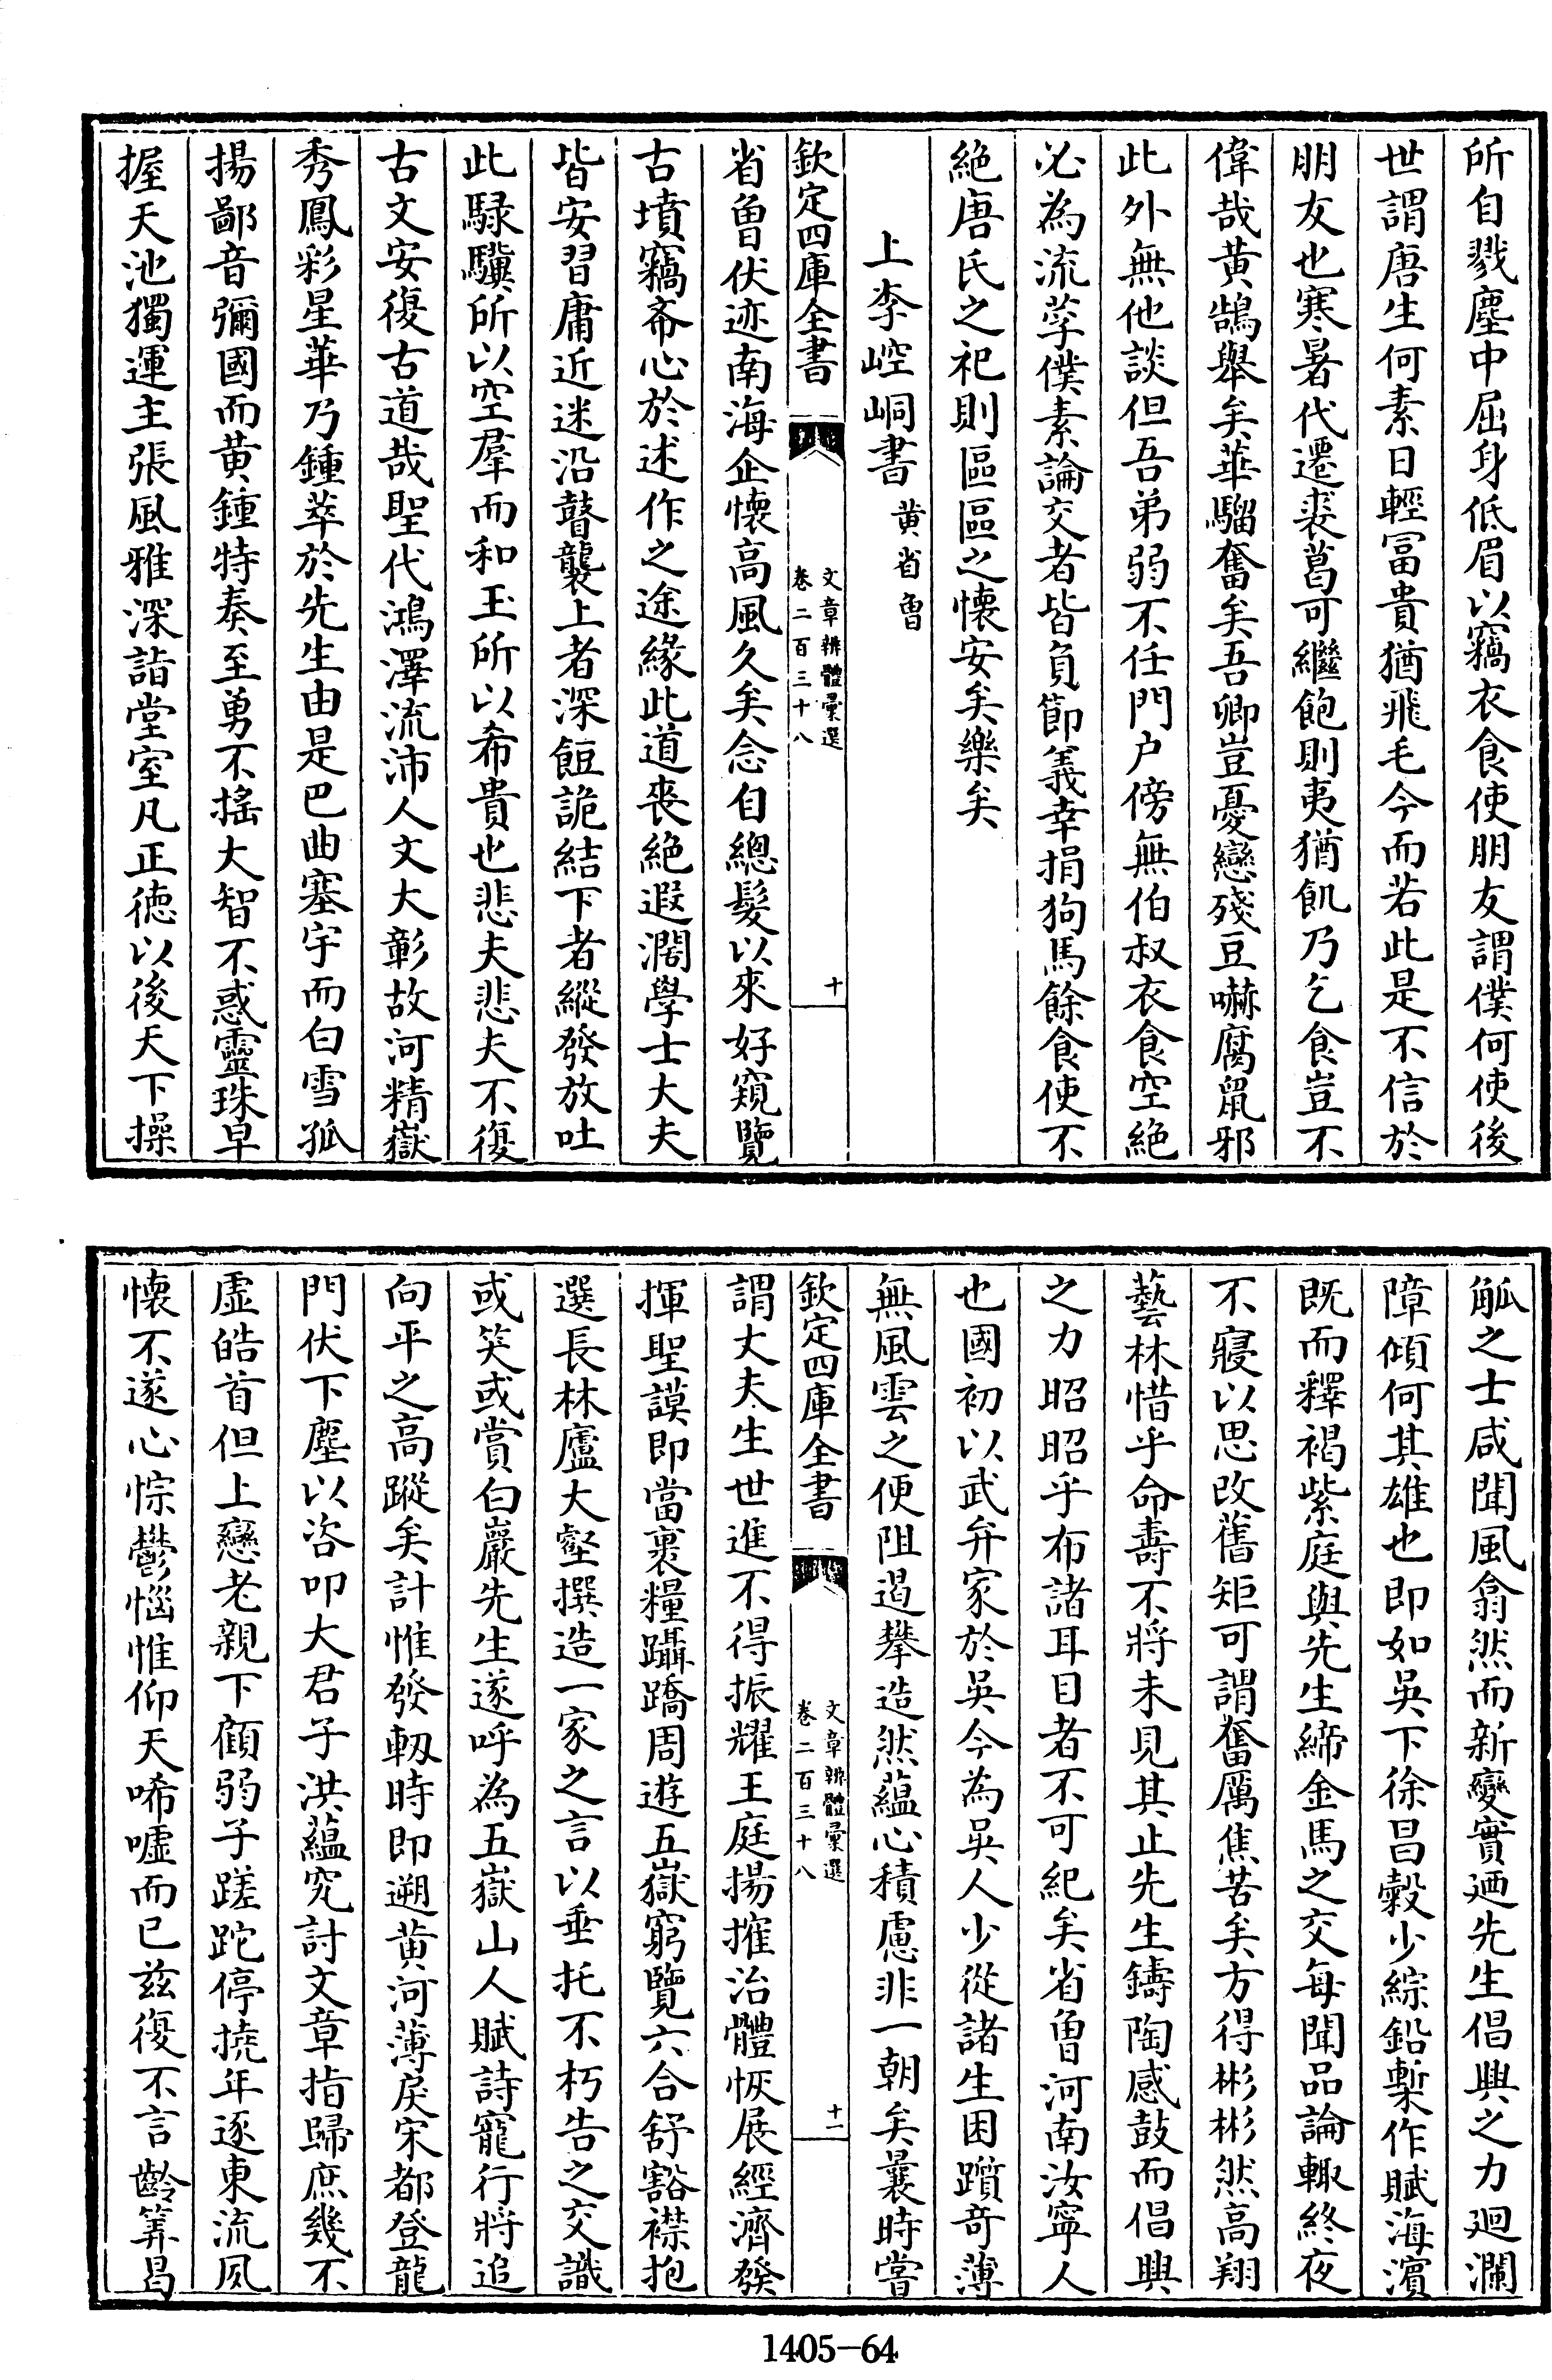 所自戮塵中屈身低眉以竊衣食使朋友謂僕何使後
世謂唐生何素日輕富貴猶飛毛今而若此是不信於
朋友也寒暑代遷裘葛可繼飽則夷猶飢乃乞食豈不
偉哉黄鵠舉矣華騮奮矣吾卿豈憂戀殘豆嚇腐鼠邪
此外無他談但吾弟弱不任門户傍無伯叔衣食空絶
必為流莩僕素論交者皆負節義幸捐狗馬餘食使不
絶唐氏之祀則區區之懷安矣樂矣
上李崆峒書 黄省曾
欽定四庫全書
文章辨體彙選
卷二百三十八
十
省曾伏迹南海企懷高風久矣念自總髮以來好窺覽
古墳竊希心於述作之途緣此道喪絶遐濶學士大夫
皆安習庸近迷沿瞽襲上者深餖詭結下者縱發放吐
此騄驥所以空羣而和玉所以希貴也悲夫悲夫不復
古文安復古道哉聖代鴻澤流沛人文大彰故河精嶽
秀鳳彩星華乃鍾萃於先生由是巴曲塞宇而白雪孤
揚鄙音彌國而黄鍾特奏至勇不搖大智不惑靈珠早
握天池獨運主張風雅深詣堂室凡正徳以後天下操
觚之士咸聞風翕然而新變實迺先生倡興之力廻瀾
障傾何其雄也即如吳下徐昌穀少綜鉛槧作賦海濵
既而釋褐紫庭與先生締金馬之交每聞品論輙終夜
不寢以思改舊矩可謂奮厲焦苦矣方得彬彬然高翔
藝林惜乎命壽不將未見其止先生鑄陶感鼓而倡興
之力昭昭乎布諸耳目者不可紀矣省曾河南汝寧人
也國初以武弁家於吳今為吳人少從諸生困躓竒薄
無風雲之便阻遏攀造然藴心積慮非一朝矣曩時嘗
欽定四庫全書
文章辨體彙選
卷二百三十八
十一
謂丈夫生世進不得振耀王庭揚搉治體恢展經濟發
揮聖謨即當裹糧躡蹻周遊五嶽窮覽六合舒豁襟抱
選長林廬大壑撰造一家之言以垂托不朽告之交識
或笑或賞白巖先生遂呼為五嶽山人賦詩寵行將追
向平之高蹤矣計惟發軔時即遡黄河薄戾宋都登龍
門伏下塵以咨叩大君子洪藴究討文章指歸庶幾不
虛皓首但上戀老親下顧弱子蹉跎停撓年逐東流夙
懷不遂心悰鬱惱惟仰天唏噓而已兹復不言齡筭曷
1405-64